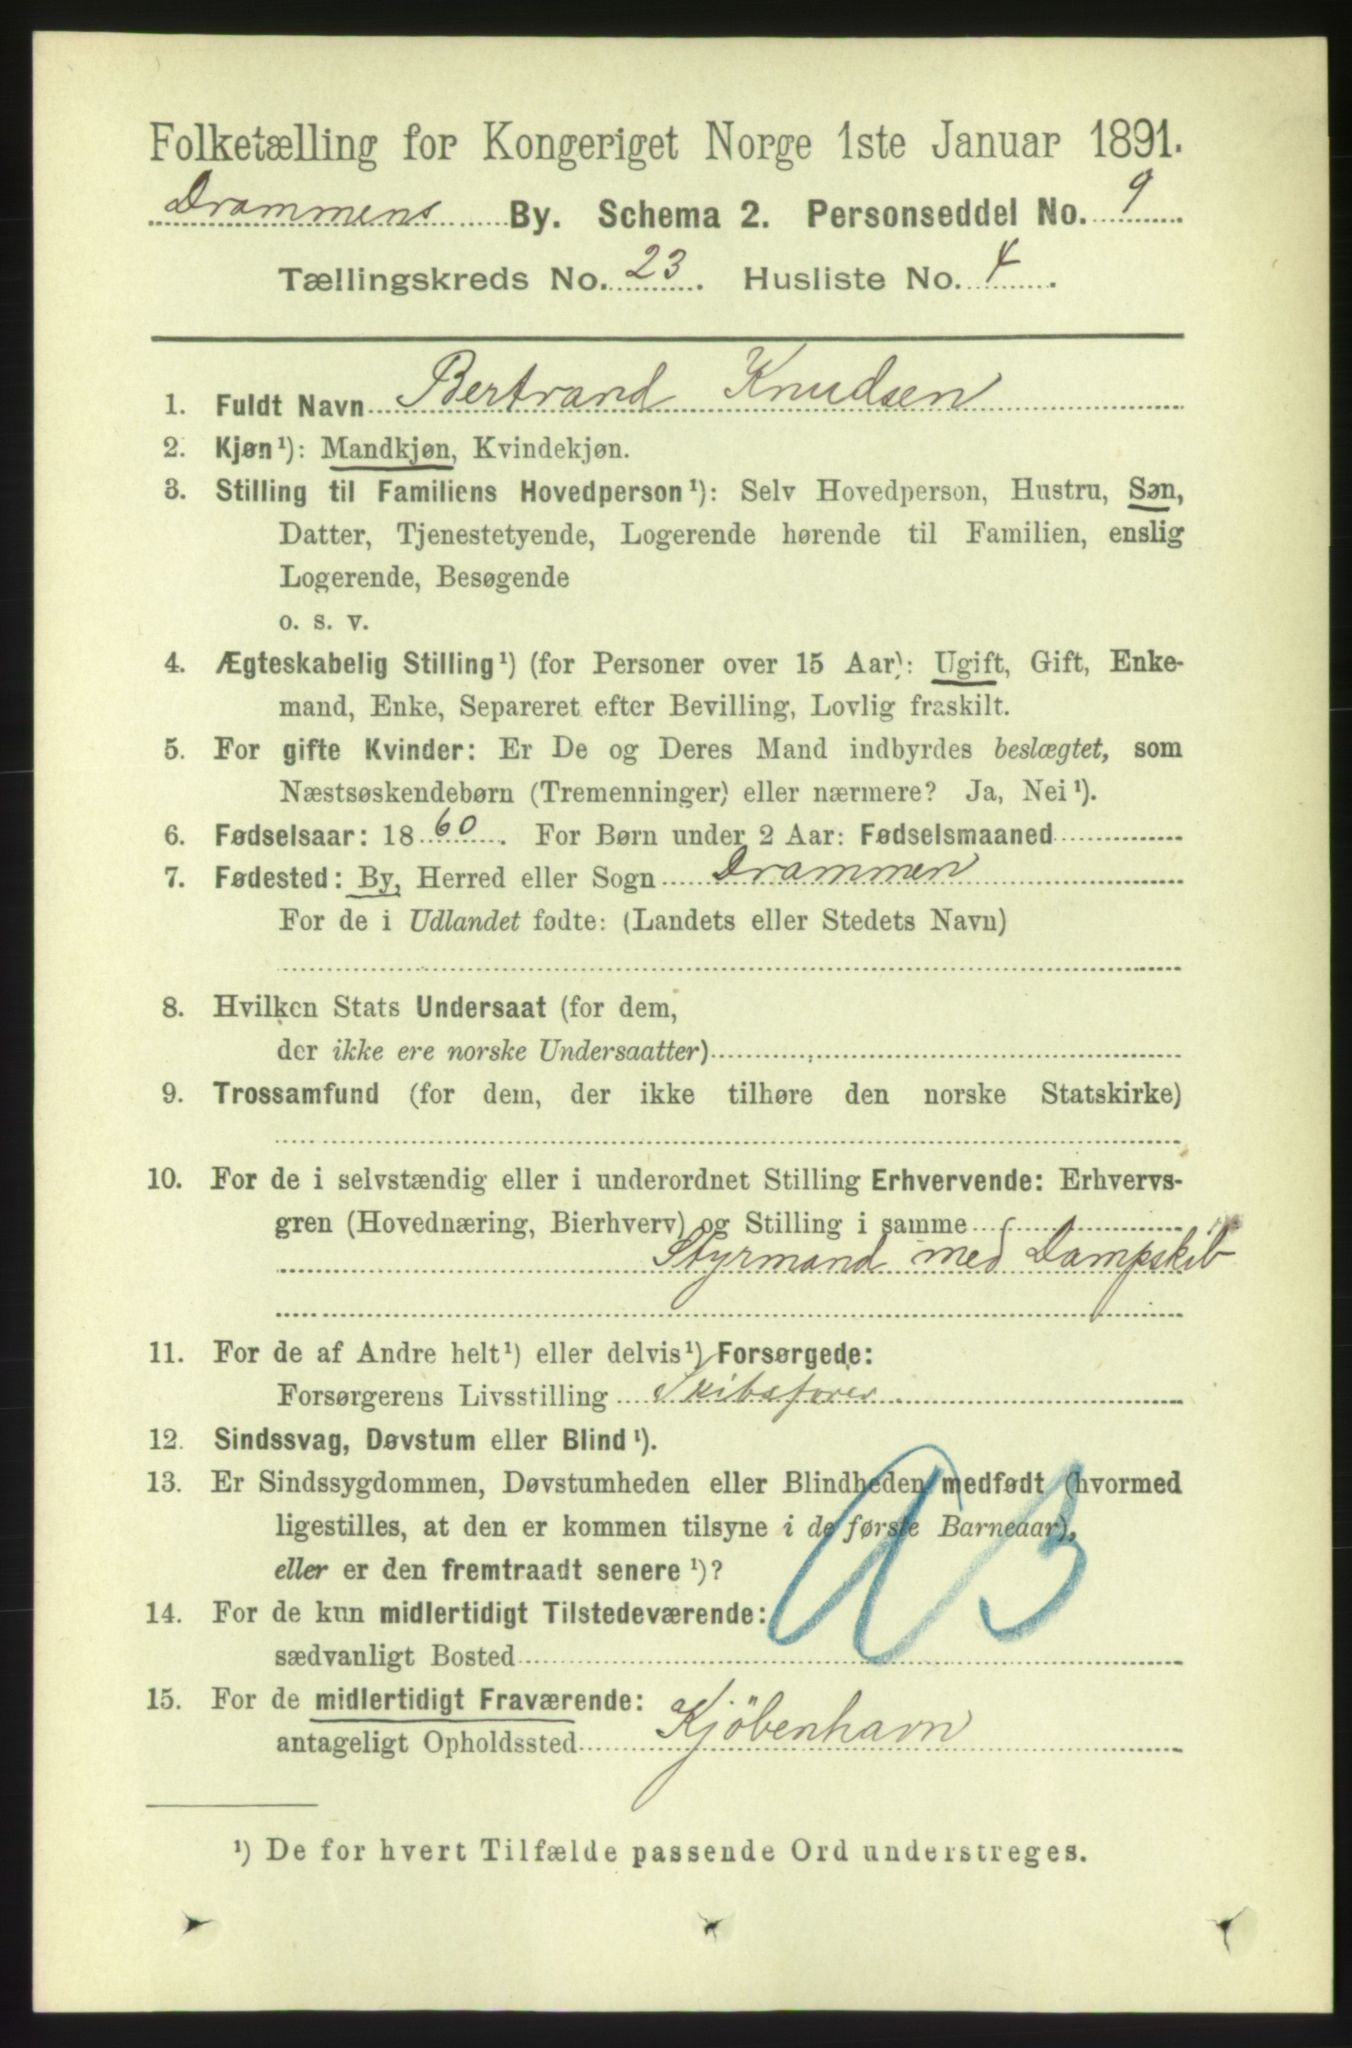 Folketælling for Kongeriget Norge 1ste Januar 1891.
Drammens By. Schema 2. Personseddel No. 9
Tællingskreds No. 23. Husliste No. 4.
1. Fuldt Navn Bertrand Knudsen
2. Kjøn¹): Mandkjøn, Kvindekjøn.
3. Stilling til Familiens Hovedperson¹): Selv Hovedperson, Hustru, Søn,
Datter, Tjenestetyende, Logerende hørende til Familien, enslig
Logerende, Besøgende
o. s. v.
4. Ægteskabelig Stilling¹) (for Personer over 15 Aar): Ugift, Gift, Enke-
mand, Enke, Separeret efter Bevilling, Lovlig fraskilt.
5. For gifte Kvinder: Er De og Deres Mand indbyrdes beslægtet, som
Næstsøskendebørn (Tremenninger) eller nærmere? Ja, Nei¹).
6. Fødselsaar: 1860. For Børn under 2 Aar: Fødselsmaaned
7. Fødested: By, Herred eller Sogn Drammen
For de i Udlandet fødte: (Landets eller Stedets Navn)
8. Hvilken Stats Undersaat (for dem,
der ikke ere norske Undersaatter)
9. Trossamfund (for dem, der ikke tilhøre den norske Statskirke)
10. For de i selvstændig eller i underordnet Stilling Erhvervende: Erhvervs-
gren (Hovednæring, Bierhverv) og Stilling i samme
Styrmand med Dampskib
11. For de af Andre helt¹) eller delvis¹) Forsørgede:
Forsørgerens Livsstilling Skibsfører
12. Sindssvag, Døvstum eller Blind¹).
13. Er Sindssygdommen, Døvstumheden eller Blindheden medfødt (hvormed
ligestilles, at den er kommen tilsyne i de første Barneaar),
eller er den fremtraadt senere¹)?
14. For de kun midlertidigt Tilstedeværende:
sædvanligt Bosted
15. For de midlertidigt Fraværende:
antageligt Opholdssted Kjöbenhavn
¹) De for hvert Tilfælde passende Ord understreges.